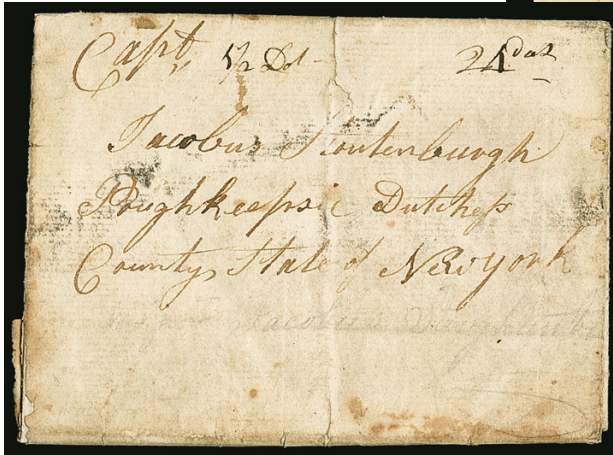 Capt 1/2 Dol 2 4 dwt
Jacobus Stoutenburgh
Poughkeepsie Dutchess
County State of New york
Jacobus